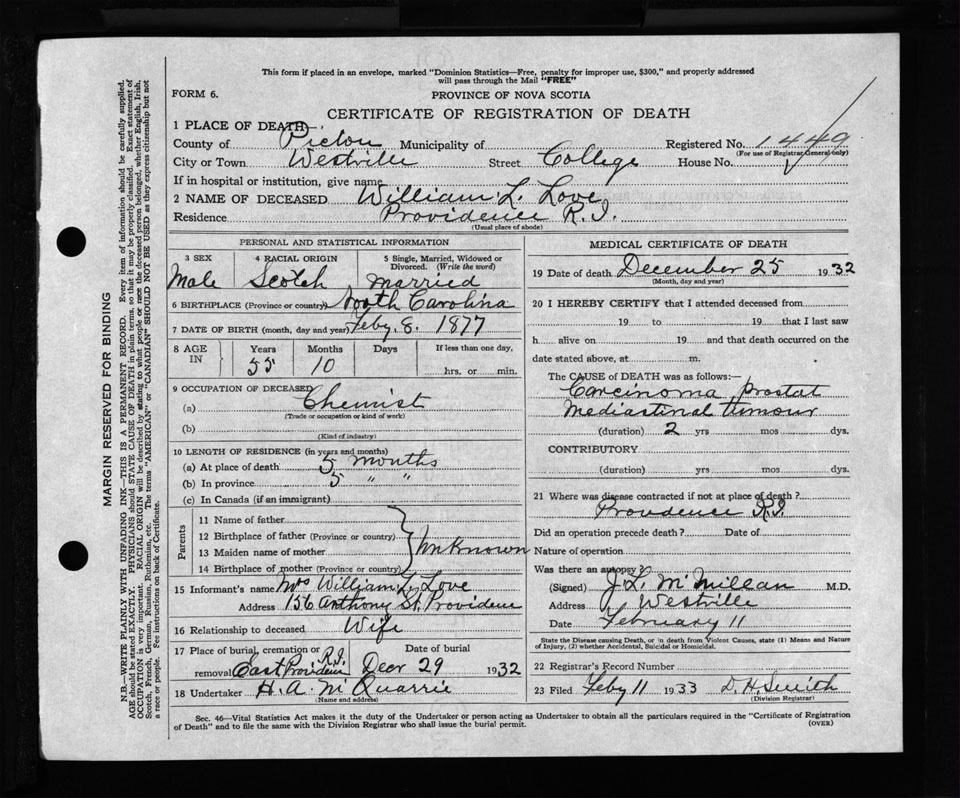 This form if placed in an envelope, marked "Dominion Statistics—Free, penalty for improper use, $300," and properly addressed
will pass through the Mail "FREE"
FORM 6.
PROVINCE OF NOVA SCOTIA
CERTIFICATE OF REGISTRATION OF DEATH
1 PLACE OF DEATH—
County of Pictou Municipality of Registered No. 1449
(For use of Registrar General only)
City or Town Westville Street College House No.
If in hospital or institution, give name
2 NAME OF DECEASED William L. Love
Residence Providence R.I.
(Usual place of abode)
PERSONAL AND STATISTICAL INFORMATION
3 SEX 4 RACIAL ORIGIN 5 Single, Married, Widowed or
Divorced. (Write the word)
Male Scotch Married
6 BIRTHPLACE (Province or country) North Carolina
7 DATE OF BIRTH (month, day and year) Feby. 8. 1877
8 AGE IN Years Months Days If less than one day,
55 10 hrs. or min.
9 OCCUPATION OF DECEASED
(a) Chemist
(Trade or occupation or kind of work)
(b)
(Kind of industry)
10 LENGTH OF RESIDENCE (in years and months)
(a) At place of death 5 months
(b) In province 5 " "
(c) In Canada (if an immigrant)
Parents
11 Name of father
12 Birthplace of father (Province or country)
13 Maiden name of mother Unknown
14 Birthplace of mother (Province or country)
15 Informant's name Mrs William L. Love
Address 156 Anthony St. Providence
16 Relationship to deceased Wife
17 Place of burial, cremation or removal East Providence R.I. Date of burial Decr 29 1932
18 Undertaker H. A. McQuarrie
(Name and address)
MEDICAL CERTIFICATE OF DEATH
19 Date of death December 25 1932
(Month, day and year)
20 I HEREBY CERTIFY that I attended deceased from
19 to 19 that I last saw
h alive on 19 and that death occurred on the
date stated above, at m.
The CAUSE of DEATH was as follows:—
Carcinoma, prostat
Mediastinal tumour
(duration) 2 yrs mos dys.
CONTRIBUTORY
(duration) yrs mos dys.
21 Where was disease contracted if not at place of death?
Providence R.I.
Did an operation precede death? Date of
Nature of operation
Was there an autopsy?
(Signed) J. L. McMillan M.D.
Address Westville
Date February 11
State the Disease causing Death, or in death from Violent Causes, state (1) Means and Nature
of Injury, (2) whether Accidental, Suicidal or Homicidal.
22 Registrar's Record Number
23 Filed Feby 11 1933 D. H. Smith
(Division Registrar)
Sec. 46—Vital Statistics Act makes it the duty of the Undertaker or person acting as Undertaker to obtain all the particulars required in the "Certificate of Registration
of Death" and to file the same with the Division Registrar who shall issue the burial permit. (OVER)
MARGIN RESERVED FOR BINDING
N.B.—WRITE PLAINLY WITH UNFADING INK—THIS IS A PERMANENT RECORD. Every item of information should be carefully supplied.
AGE should be stated EXACTLY. PHYSICIANS should STATE CAUSE OF DEATH in plain terms, so that it may be properly classified. Exact statement of
OCCUPATION is very important. RACIAL ORIGIN will be described by stating to what people or race the deceased person belonged, whether English, Irish,
Scotch, French, German, Russian, Ruthenian, etc. The terms "AMERICAN" or "CANADIAN" SHOULD NOT BE USED as they express citizenship but not
a race or people. Fee instructions on back of Certificate.